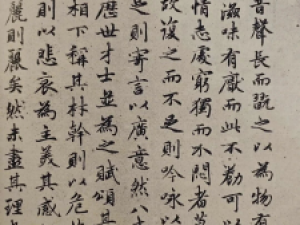 音聲長而翫之以為物有
滋味有厭而此不勌可以
情志處窮獨而不悶者莫
故復之而不足則吟詠以
足則寄言以廣意然八
歷世才士並為之賦頌其
相下稱其材幹則以危
則以悲哀為主美其感
麗則麗矣然未盡其理